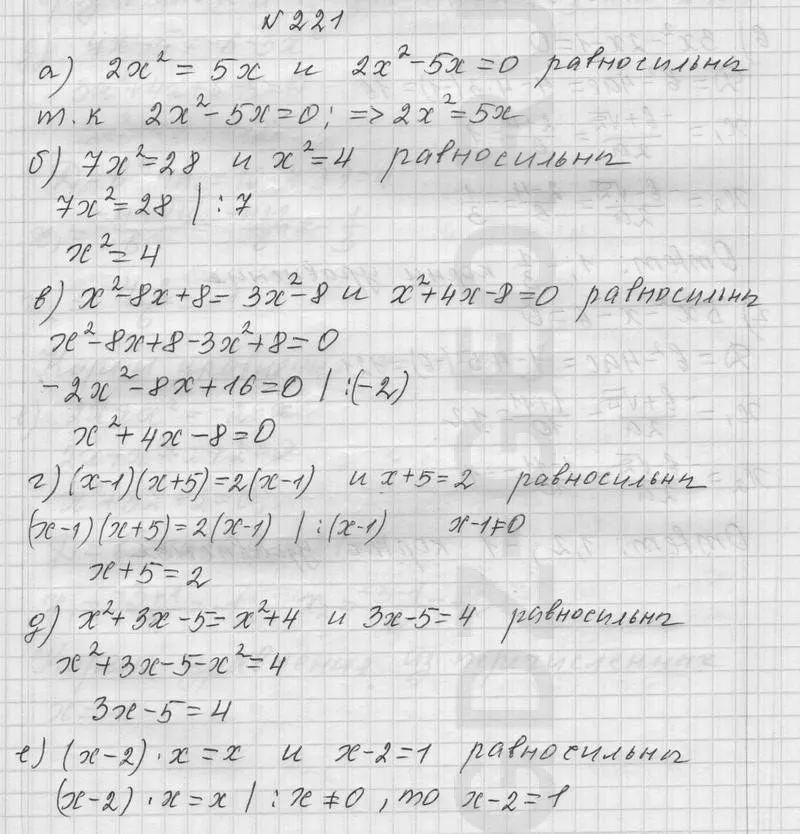 №221
а) 2x² = 5x и 2x²-5x=0 равносильны
т.к 2x²-5x=0; => 2x²=5x
б) 7x²=28 и x²=4 равносильны
7x²=28 | :7
x²=4
в) x²-8x+8=3x²-8 и x²+4x-8=0 равносильны
x²-8x+8-3x²+8=0
-2x²-8x+16=0 | :(-2)
x²+4x-8=0
г) (x-1)(x+5)=2(x-1) и x+5=2 равносильны
(x-1)(x+5)=2(x-1) | :(x-1) x-1≠0
x+5=2
д) x²+3x-5=x²+4 и 3x-5=4 равносильны
x²+3x-5-x²=4
3x-5=4
е) (x-2)·x=x и x-2=1 равносильны
(x-2)·x=x | :x≠0, то x-2=1